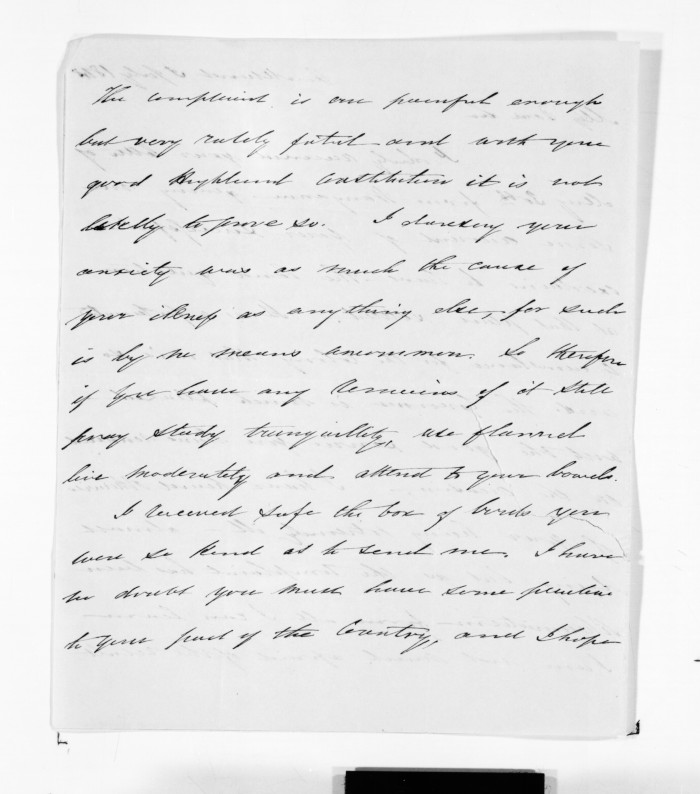 The complaint is one painful enough
but very rarely fatal and with your
good Highland constitution it is not
likelly to prove so. I daresay your
anxiety was as much the cause of
your illness as anything else, for such
is by no means uncommon. So therefore
if you have any remains of it still
pray study tranquillity, use flannel
live moderately and attend to your bowels.
I received safe the box of birds you
were so kind as to send me. I have
no doubt you must have some peculiar
to your part of the Country, and I hope